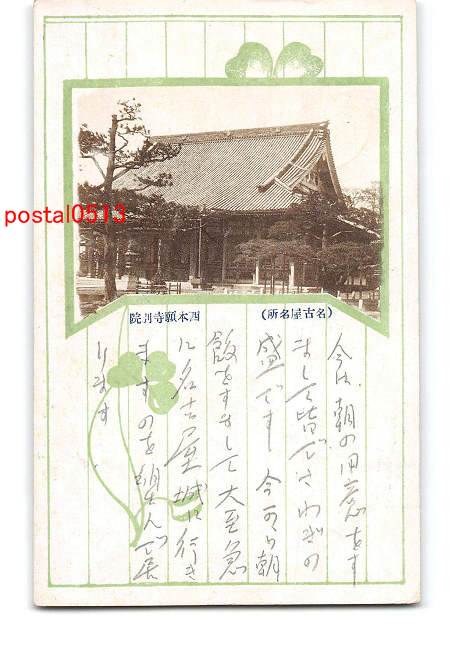 postal0513
(名古屋名所)
西本願寺別院
今は、朝の用意をす
まして皆でさわぎの
盛です 今より朝
飯をすまして大至急
に名古屋城に行き
ますのを楽んで居
ります